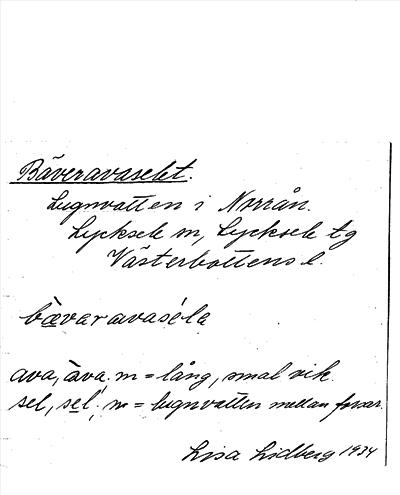 Bäveravaselet.
Lugnvatten i Norrån.
Lycksele m, Lycksele tg
Västerbottens l.
bæ̀varavasé̀la
ava, àva. m = lång, smal vik.
sel, sel, m = lugnvatten mellan forsar.
Lisa Lidberg 1934